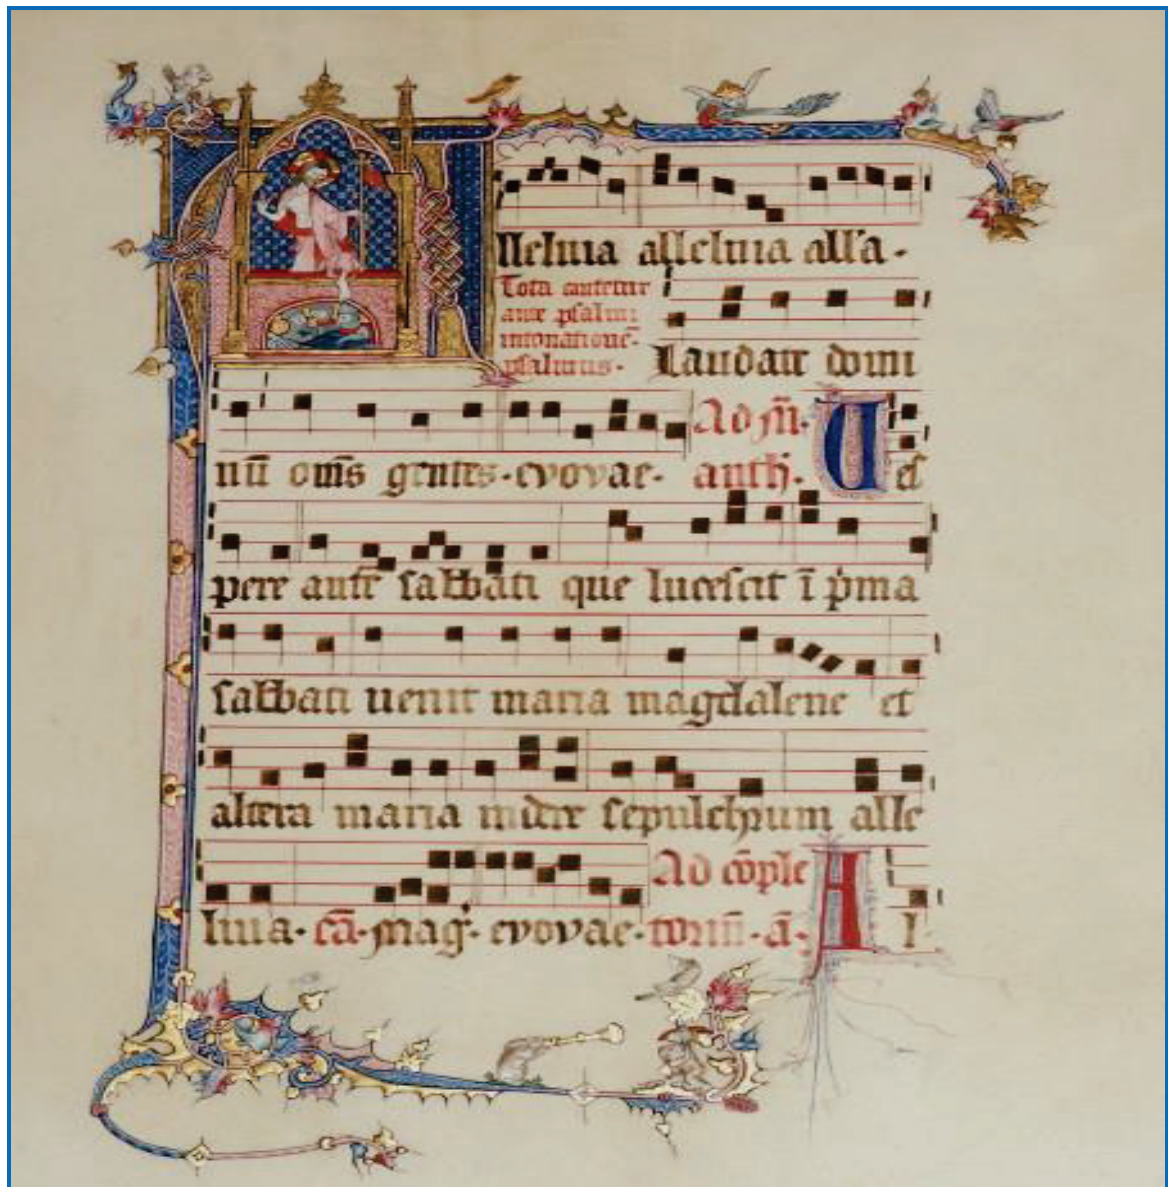 lleluia alleluia all'a.
Tota cantetur
ante psalmū
intonatione
psalmus.
Laudate domi
nū om̄s gentes. evovae. Ad m̄.
anth̄. Ves
pere autē sabbati que lucescit ī p'ma
sabbati uenit maria magdalene et
altera maria uidere sepulchrum alle
luia. cā. mag'. evovae. Ad cōple
toriū. a. Al